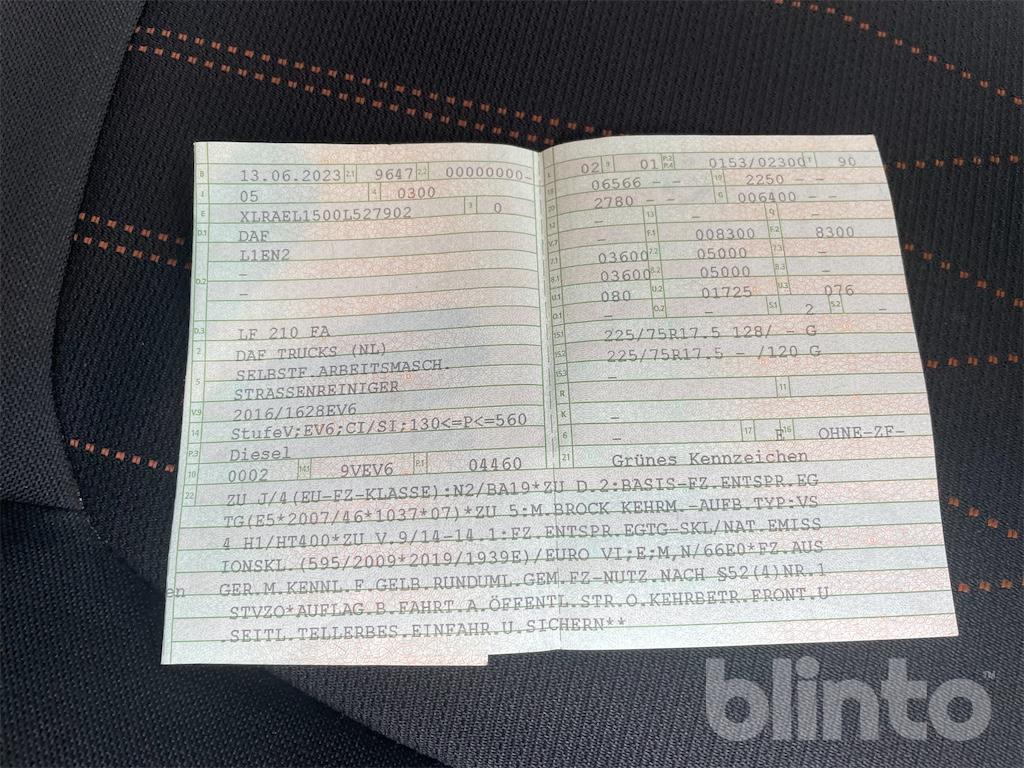 B 13.06.2023 2.1 9647 2.2 00000000-
J 05 4 0300
E XLRAEL1500L527902 3 0
D.1 DAF
L1EN2
D.2 -
-
D.3 LF 210 FA
2 DAF TRUCKS (NL)
5 SELBSTF.ARBEITSMASCH.
STRASSENREINIGER
V.9 2016/1628EV6
14 StufeV;EV6;CI/SI;130<=P<=560
P.3 Diesel
10 0002 14.1 9VEV6 P.1 04460
L 02 9 01 P.2 P.4 0153/02300 T 90
18 06566 - - 19 2250 - -
20 2780 - - G 006400 - -
12 - 13 - Q -
V.7 - F.1 008300 F.2 8300
7.1 03600 7.2 05000 7.3 -
8.1 03600 8.2 05000 8.3 -
U.1 080 U.2 01725 U.3 076
O.1 - O.2 - S.1 2 S.2 -
15.1 225/75R17.5 128/ - G
15.2 225/75R17.5 - /120 G
15.3 -
R 11
K -
6 - 17 E 16 OHNE-ZF-
21 Grünes Kennzeichen
22 ZU J/4(EU-FZ-KLASSE):N2/BA19*ZU D.2:BASIS-FZ.ENTSPR.EG
TG(E5*2007/46*1037*07)*ZU 5:M.BROCK KEHRM.-AUFB.TYP:VS
4 H1/HT400*ZU V.9/14-14.1:FZ.ENTSPR.EGTG-SKL/NAT.EMISS
IONSKL.(595/2009*2019/1939E)/EURO VI;E;M,N/66E0*FZ.AUS
en GER.M.KENNL.F.GELB.RUNDUML.GEM.FZ-NUTZ.NACH §52(4)NR.1
STVZO*AUFLAG.B.FAHRT.A.ÖFFENTL.STR.O.KEHRBETR.FRONT.U
.SEITL.TELLERBES.EINFAHR.U.SICHERN**
blinto™